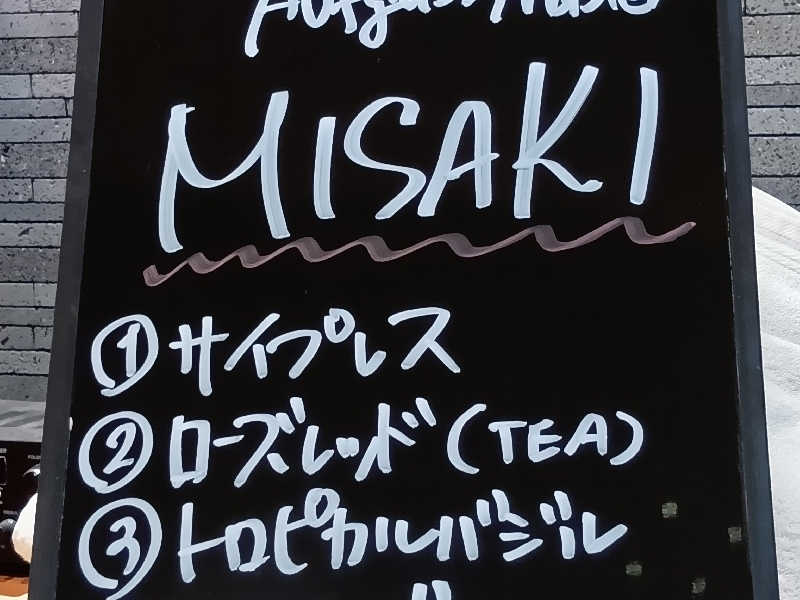 MISAKI
①サイプレス
②ローズレッド(TEA)
③トロピカルバジル